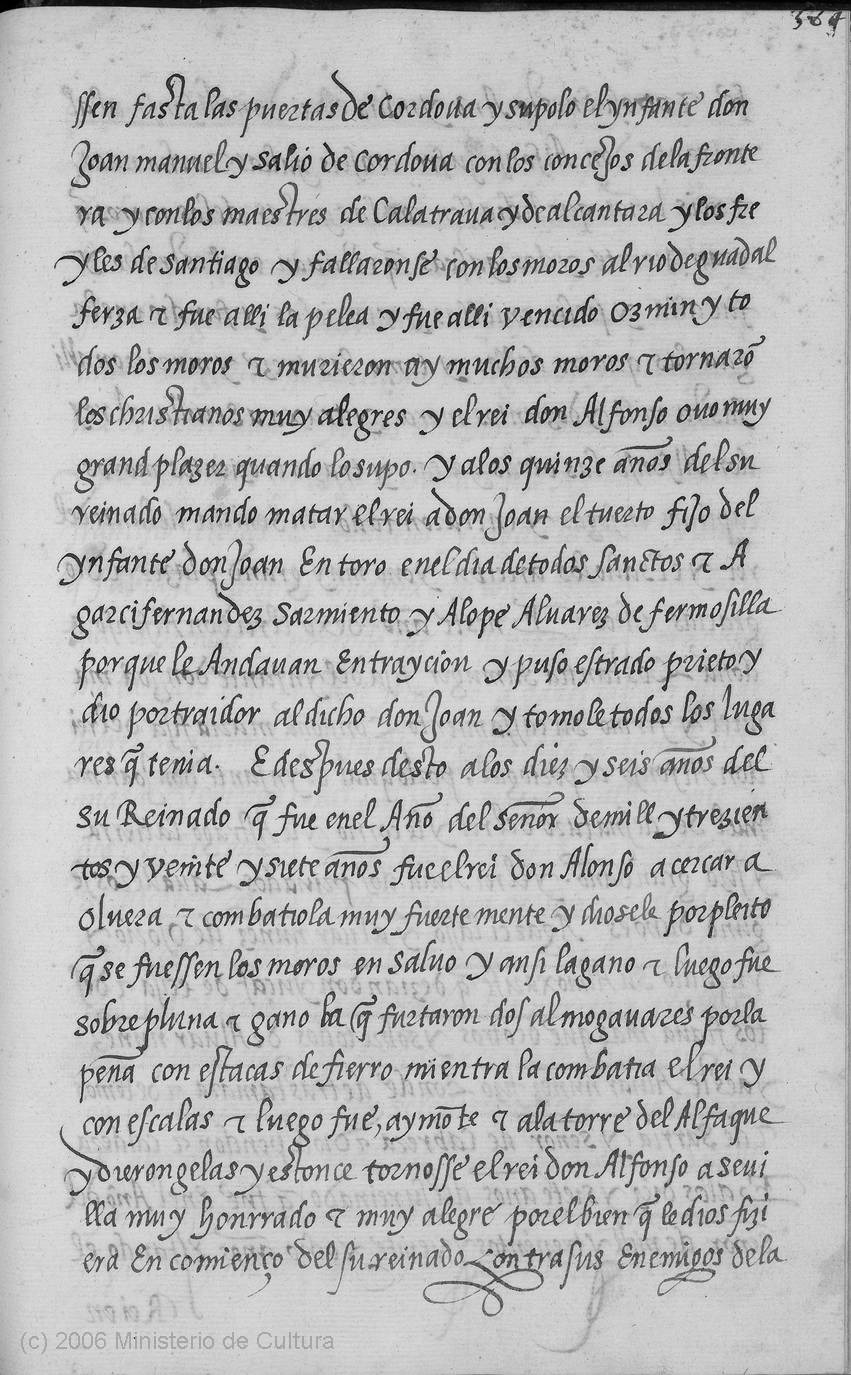 364
ssen fasta las puertas de Cordoua y supolo el ynfante don
Joan manuel y salió de Cordoua con los concejos de la fronte
ra y con los maestres de Calatraua y de alcantara y los fre
yles de santiago y fallaronse con los moros al rio de guadal
ferza & fue alli la pelea y fue alli vencido Ozmin y to
dos los moros & murieron ay muchos moros & tornarō
los christianos muy alegres y el rei don Alfonso ouo muy
grand plazer quando lo supo. Y a los quinze años del su
reinado mando matar el rei a don Joan el tuerto fijo del
ynfante don Joan En toro en el dia de todos sanctos & A
garci fernandez Sarmiento y A lope Aluarez de fermosilla
porque le Andauan En traycion y puso estrado prieto y
dio por traidor al dicho don Joan y tomole todos los luga
res q̃ tenia. E despues desto a los diez y seis años del
su Reinado q̃ fue en el Año del señor de mill y trezien
tos y veinte y siete años fue el rei don Alonso a cercar a
Oluera & combatiola muy fuerte mente y diosele por pleito
q̃ se fuessen los moros en saluo y ansi la gano & luego fue
sobre pluna & gano la q̃ furtaron dos almogauares por la
peña con estacas de fierro mientra la combatia el rei y
con escalas & luego fue, aymōte & a la torre del Alfaque
y dierongelas y estonce tornosse el rei don Alfonso a seui
lla muy honrrado & muy alegre por el bien q̃ le dios fizi
era En comienço del su reinado Contra sus Enemigos de la
(c) 2006 Ministerio de Cultura